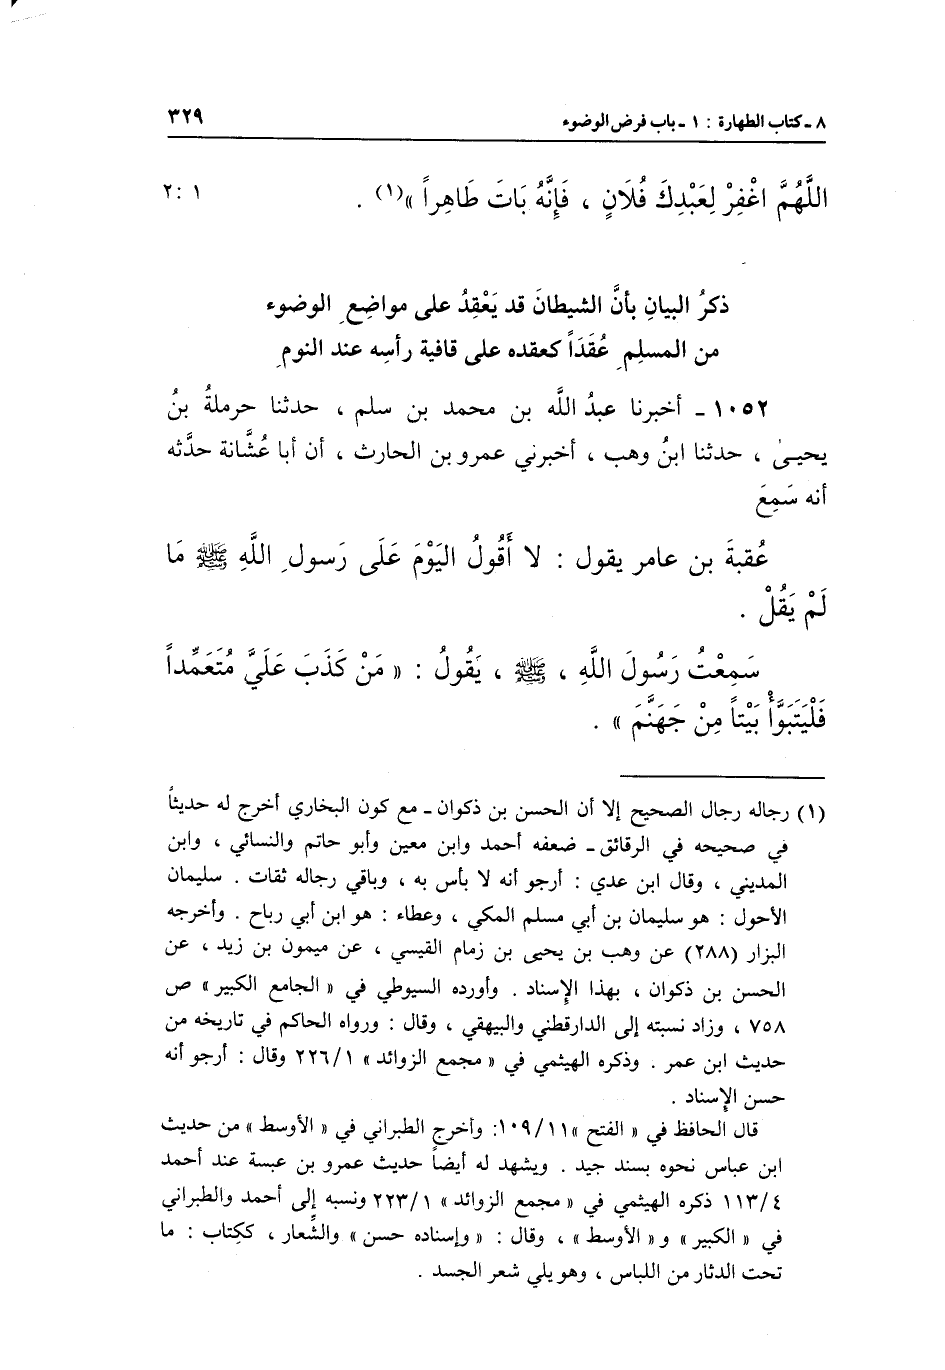 ٨ - كتاب الطهارة : ١ - باب فرض الوضوء ٣٢٩
اللَّهُمَّ اغْفِرْ لِعَبْدِكَ فُلَانٍ ، فَإِنَّهُ بَاتَ طَاهِراً »(١) . ١ : ٢
ذكرُ البيانِ بأنَّ الشيطانَ قد يَعْقِدُ على مواضِعِ الوضوء
من المسلِمِ عُقَدَاً كعقده على قافية رأسِه عند النومِ
١٠٥٢ - أخبرنا عبدُ اللَّه بن محمد بن سلم ، حدثنا حرملةُ بنُ
يحيىٰ ، حدثنا ابنُ وهب ، أخبرني عمرو بن الحارث ، أن أبا عُشَّانة حدَّثه
أنه سَمِعَ
عُقبةَ بن عامر يقول : لا أَقُولُ اليَوْمَ عَلَى رَسولِ اللَّهِ ﷺ مَا
لَمْ يَقُلْ .
سَمِعْتُ رَسُولَ اللَّهِ ، ﷺ ، يَقُولُ : « مَنْ كَذَبَ عَلَيَّ مُتَعَمِّداً
فَلْيَتَبَوَّأْ بَيْتاً مِنْ جَهَنَّمَ » .
(١) رجاله رجال الصحيح إلا أن الحسن بن ذكوان - مع كون البخاري أخرج له حديثاً
في صحيحه في الرقائق - ضعفه أحمد وابن معين وأبو حاتم والنسائي ، وابن
المديني ، وقال ابن عدي : أرجو أنه لا بأس به ، وباقي رجاله ثقات . سليمان
الأحول : هو سليمان بن أبي مسلم المكي ، وعطاء : هو ابن أبي رباح . وأخرجه
البزار (٢٨٨) عن وهب بن يحيى بن زمام القيسي ، عن ميمون بن زيد ، عن
الحسن بن ذكوان ، بهذا الإسناد . وأورده السيوطي في « الجامع الكبير » ص
٧٥٨ ، وزاد نسبته إلى الدارقطني والبيهقي ، وقال : ورواه الحاكم في تاريخه من
حديث ابن عمر . وذكره الهيثمي في « مجمع الزوائد » ٢٢٦/١ وقال : أرجو أنه
حسن الإسناد .
قال الحافظ في « الفتح » ١٠٩/١١: وأخرج الطبراني في « الأوسط » من حديث
ابن عباس نحوه بسند جيد . ويشهد له أيضاً حديث عمرو بن عبسة عند أحمد
١١٣/٤ ذكره الهيثمي في « مجمع الزوائد » ٢٢٣/١ ونسبه إلى أحمد والطبراني
في « الكبير » و « الأوسط » ، وقال : « وإسناده حسن » والشِّعار ، ككِتاب : ما
تحت الدثار من اللباس ، وهو يلي شعر الجسد .